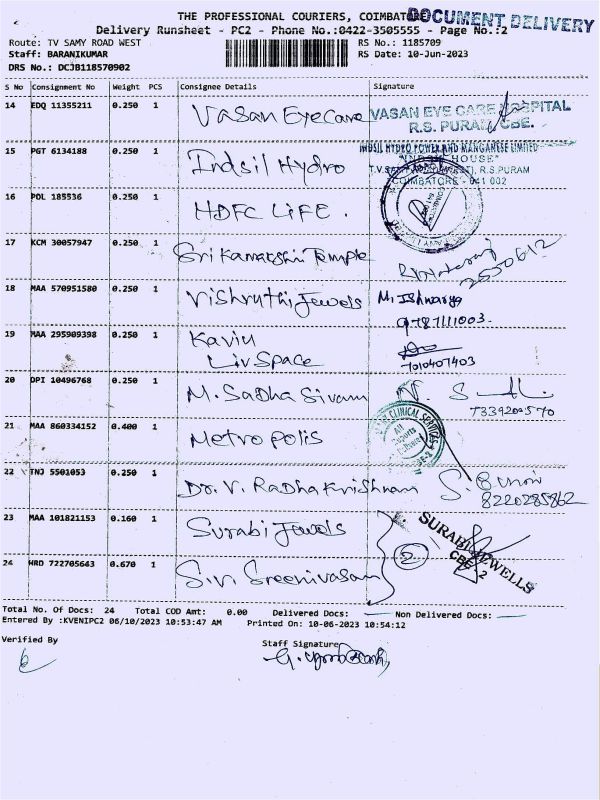 THE PROFESSIONAL COURIERS, COIMBATORE
DOCUMENT DELIVERY
Delivery Runsheet - PC2 - Phone No.:0422-3505555 - Page No.:2
Route: TV SAMY ROAD WEST
RS No.: 1185709
Staff: BARANIKUMAR
RS Date: 10-Jun-2023
DRS No.: DCJB118570902
S No Consignment No Weight PCS Consignee Details Signature
14 EDQ 11355211 0.250 1 Vasan EyeCare
VASAN EYE CARE HOSPITAL
R.S. PURAM, CBE.
15 PGT 6134188 0.250 1 Indsil Hydro
INDSIL HYDRO POWER AND MANGANESE LIMITED
"INDSIL HOUSE"
R.S.PURAM
COIMBATORE - 641 002
16 POL 185536 0.250 1 HDFC LIFE.
17 KCM 30057947 0.250 1 Sri Kamakshi Temple
18 MAA 570951580 0.250 1 Vishruthi Jewels
9787111003
19 MAA 295909398 0.250 1 Kaviu
LivSpace
7010407403
20 DPI 10496768 0.250 1 M. Sadha Sivam
21 MAA 860334152 0.400 1 Metropolis
22 TNJ 5501053 0.250 1 Dr. V. Radha Krishnam
8220285862
23 MAA 101821153 0.160 1 Surabi Jewels
SURABI JEWELLS
CBE-2
24 HRD 722705643 0.670 1 Siri Sreenivasam
2
Total No. Of Docs: 24 Total COD Amt: 0.00 Delivered Docs: Non Delivered Docs:
Entered By :KVENIPC2 06/10/2023 10:53:47 AM Printed On: 10-06-2023 10:54:12
Verified By
Staff Signature